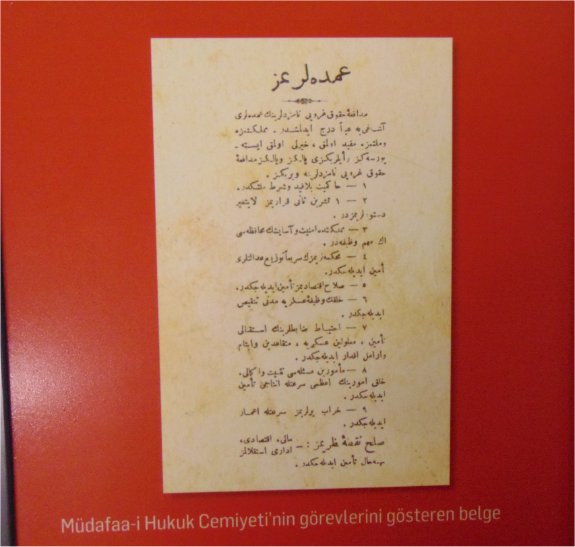 عمده لریمز
مدافعهٔ حقوق غروپی نامزدلرینك عمده لری
آتیده عیناً درج ایدلمشدر . مملكتكزه
وملتكزه مفید اولمق ، خیرلی اولمق ایسته
یورسه كز رأیلریكزی یالكز ویالكز مدافعهٔ
حقوق غروپی نامزدلرینه ویریكز .
١ — حاكمیت بلاقید وشرط ملتكدر .
٢ — ١ تشرین ثانی قراریمز لایتغیر
دستوریمزدر .
٣ — مملكتده امنیت وآسایشك محافظه سی
اك مهم وظیفه در .
٤ — محكمه لریمزك سریعاً توزیع عدالتلری
تأمین ایدیله جكدر .
٥ — صلاح اقتصادیمز تأمین ایدیله جكدر .
٦ — خلقك وظیفهٔ عسكریه مدتی تنقیص
ایدیله جكدر .
٧ — احتیاط ضابطلرینك استقبالی
تأمین ، معلولین عسكریه ، متقاعدین وایتام
وارامل اقدار ایدیله جكدر .
٨ — مأمورین مسئله سی تثبیت واكمالی ،
خلق امورینك اعظمی سرعتله انتاجی تأمین
ایدیله جكدر .
٩ — خراب یرلریمز سرعتله اعمار
ایدیله جكدر .
صلح نقطهٔ نظریمز : — مالی ، اقتصادی ،
اداری استقلالمز
بهمه حال تأمین ایدیله جكدر .
Müdafaa-i Hukuk Cemiyeti'nin görevlerini gösteren belge